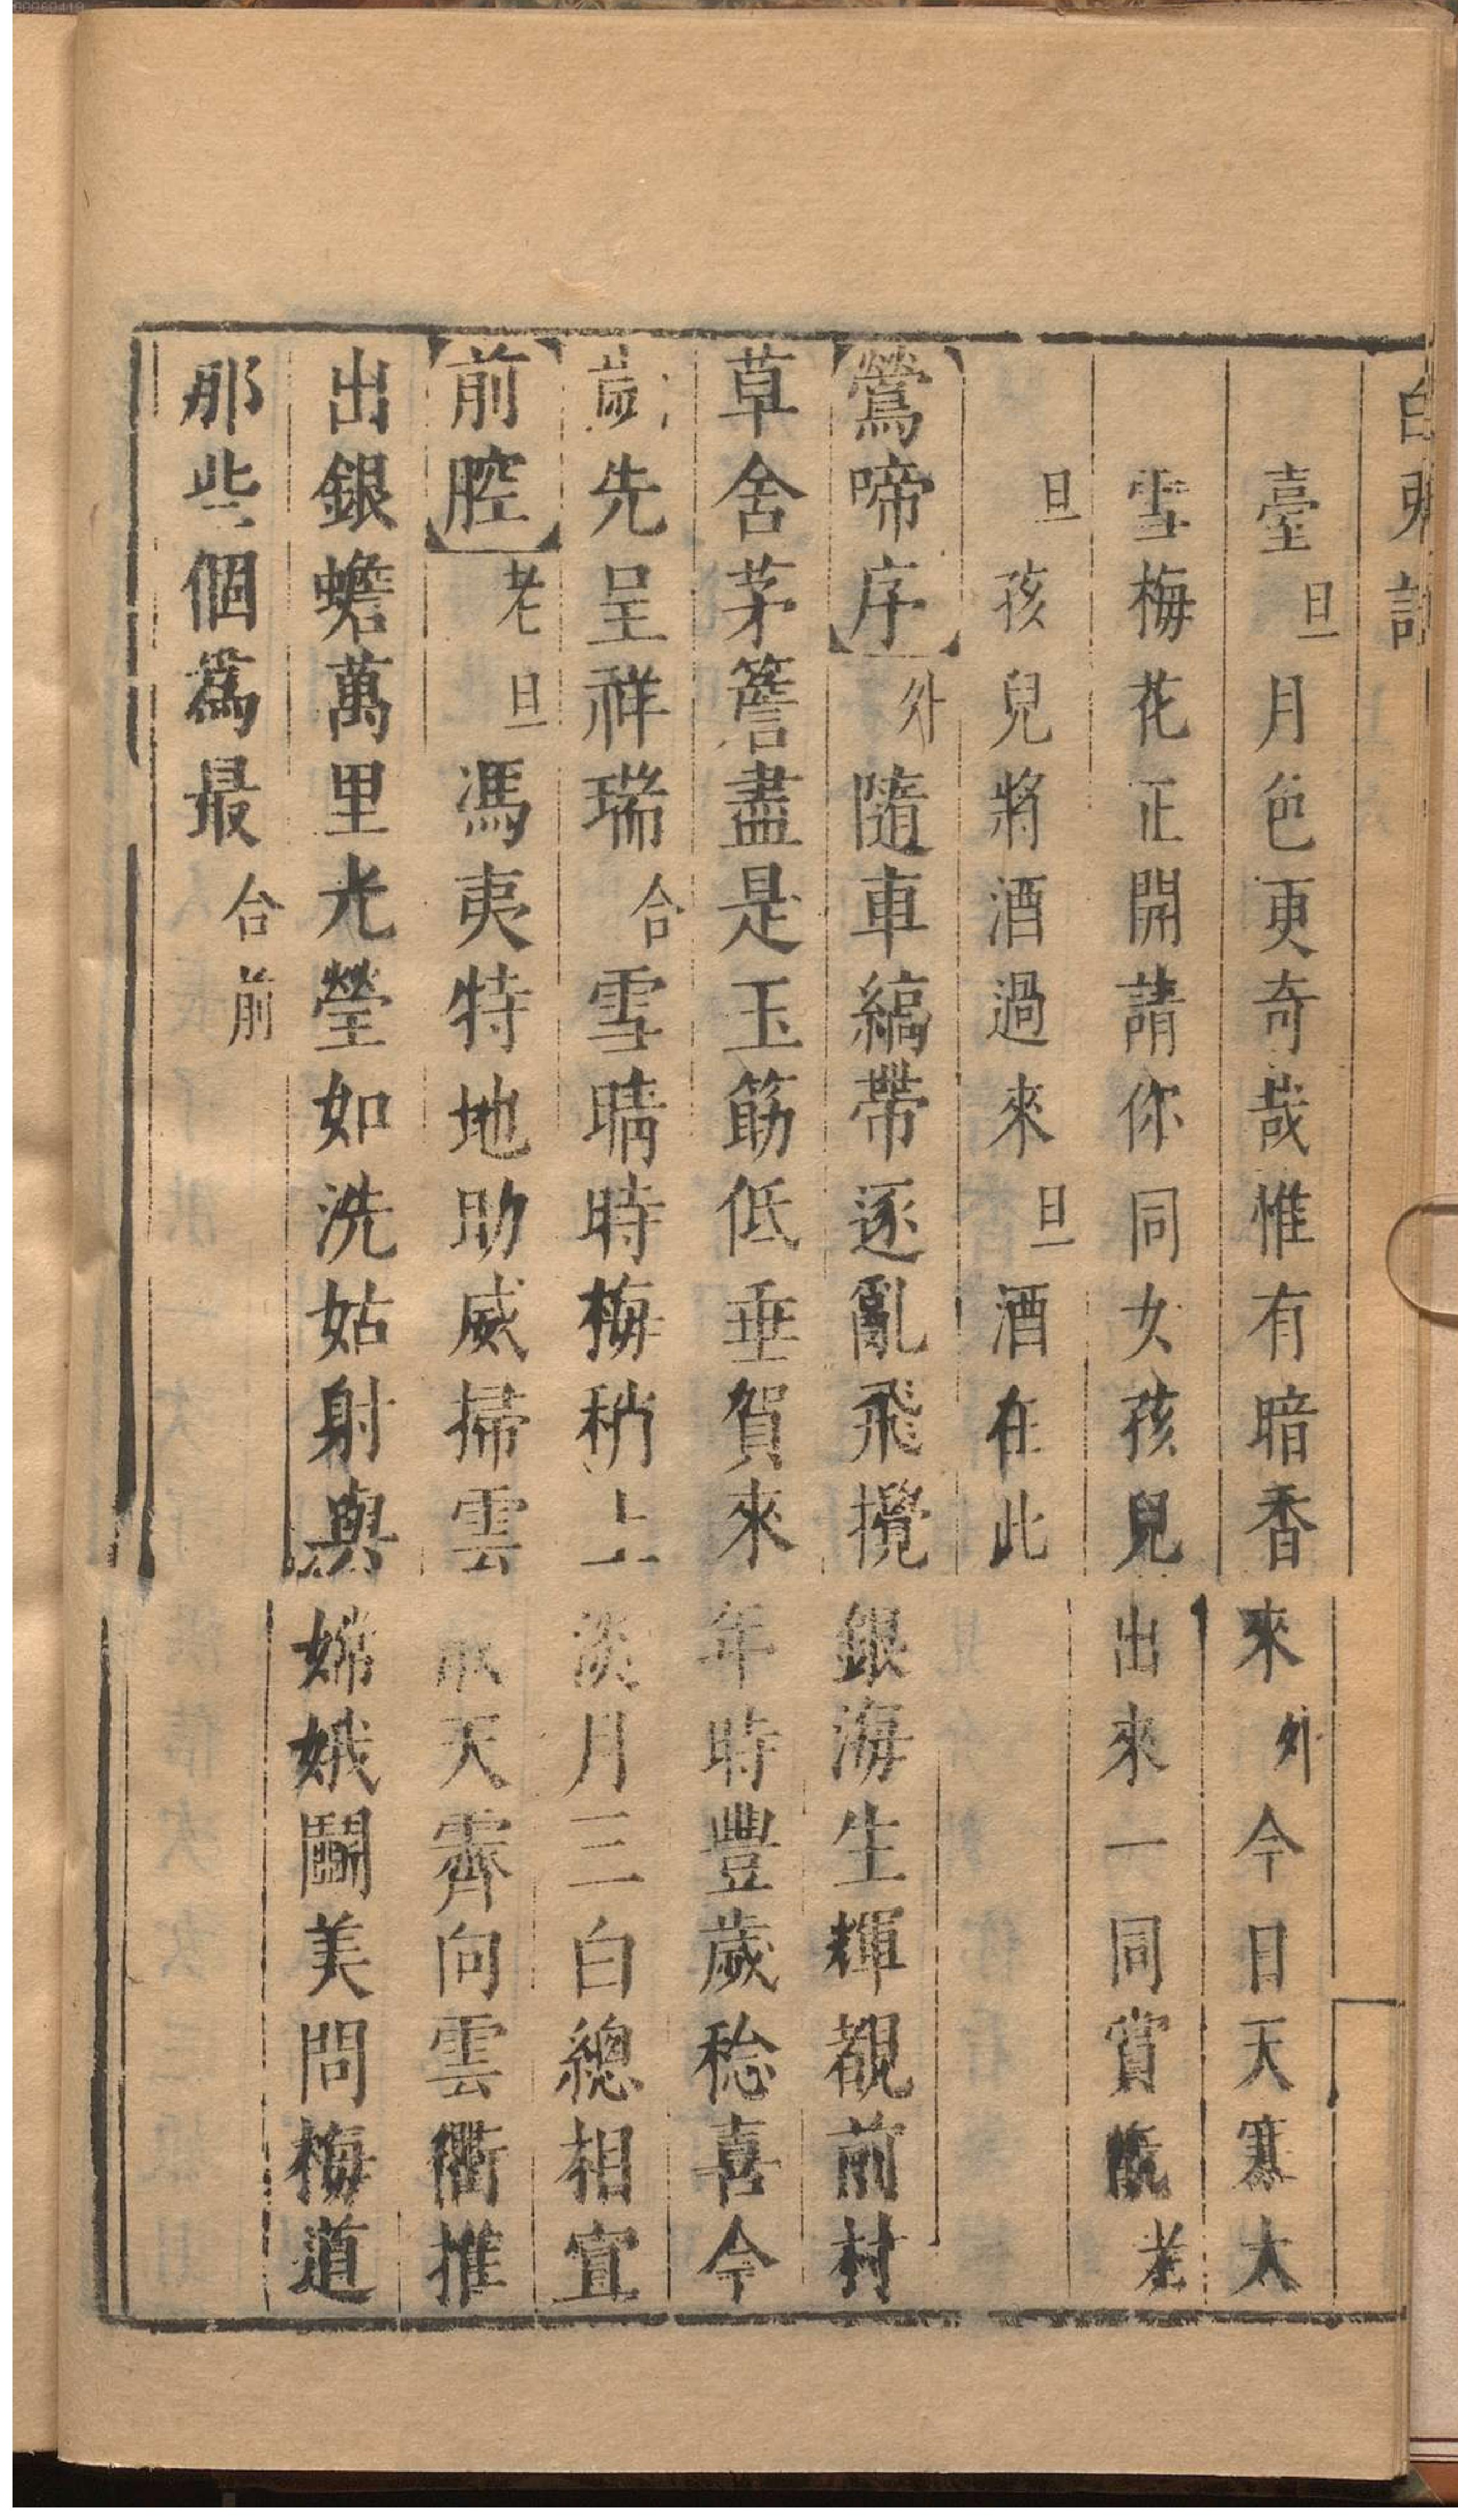 白兎記
臺旦月色更奇哉惟有暗香來外今日天寒大
雪梅花正開請你同女孩兒出來一同賞翫老
旦孩兒將酒過來旦酒在此
【鶯啼序】外隨車縞帶逐亂飛攪銀海生輝覩前村
草舍茅簷盡是玉筯低垂賀來年時豐歲稔喜今
歲先呈祥瑞合雪晴時梅稍上淡月三白總相宜
【前腔】老旦馮夷特地助威掃雲天霽向雲衢推
出銀蟾萬里光瑩如洗姑射與嫦娥鬭美問梅道
那些個爲最合前